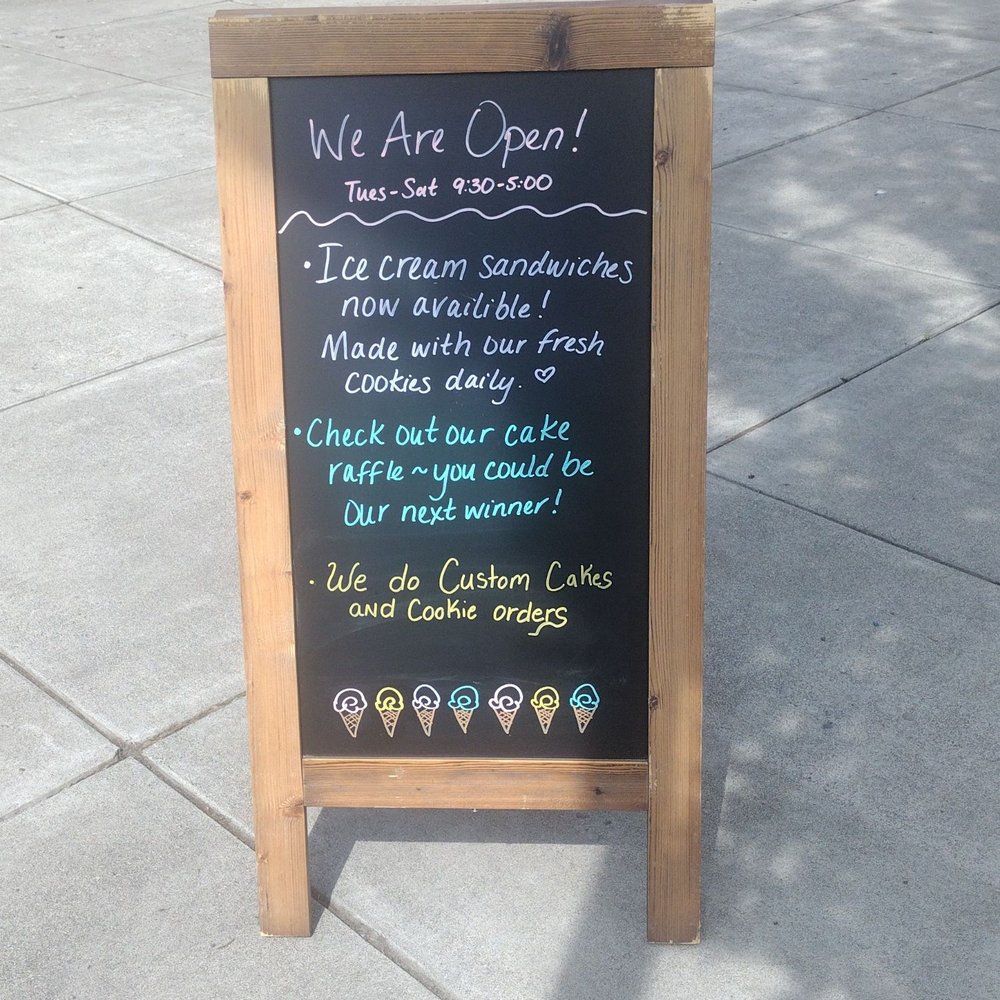 We Are Open!
Tues-Sat 9:30-5:00
• Ice cream sandwiches
now availible!
Made with our fresh
cookies daily. ♡
• Check out our cake
raffle ~ you could be
our next winner!
• We do Custom Cakes
and Cookie orders